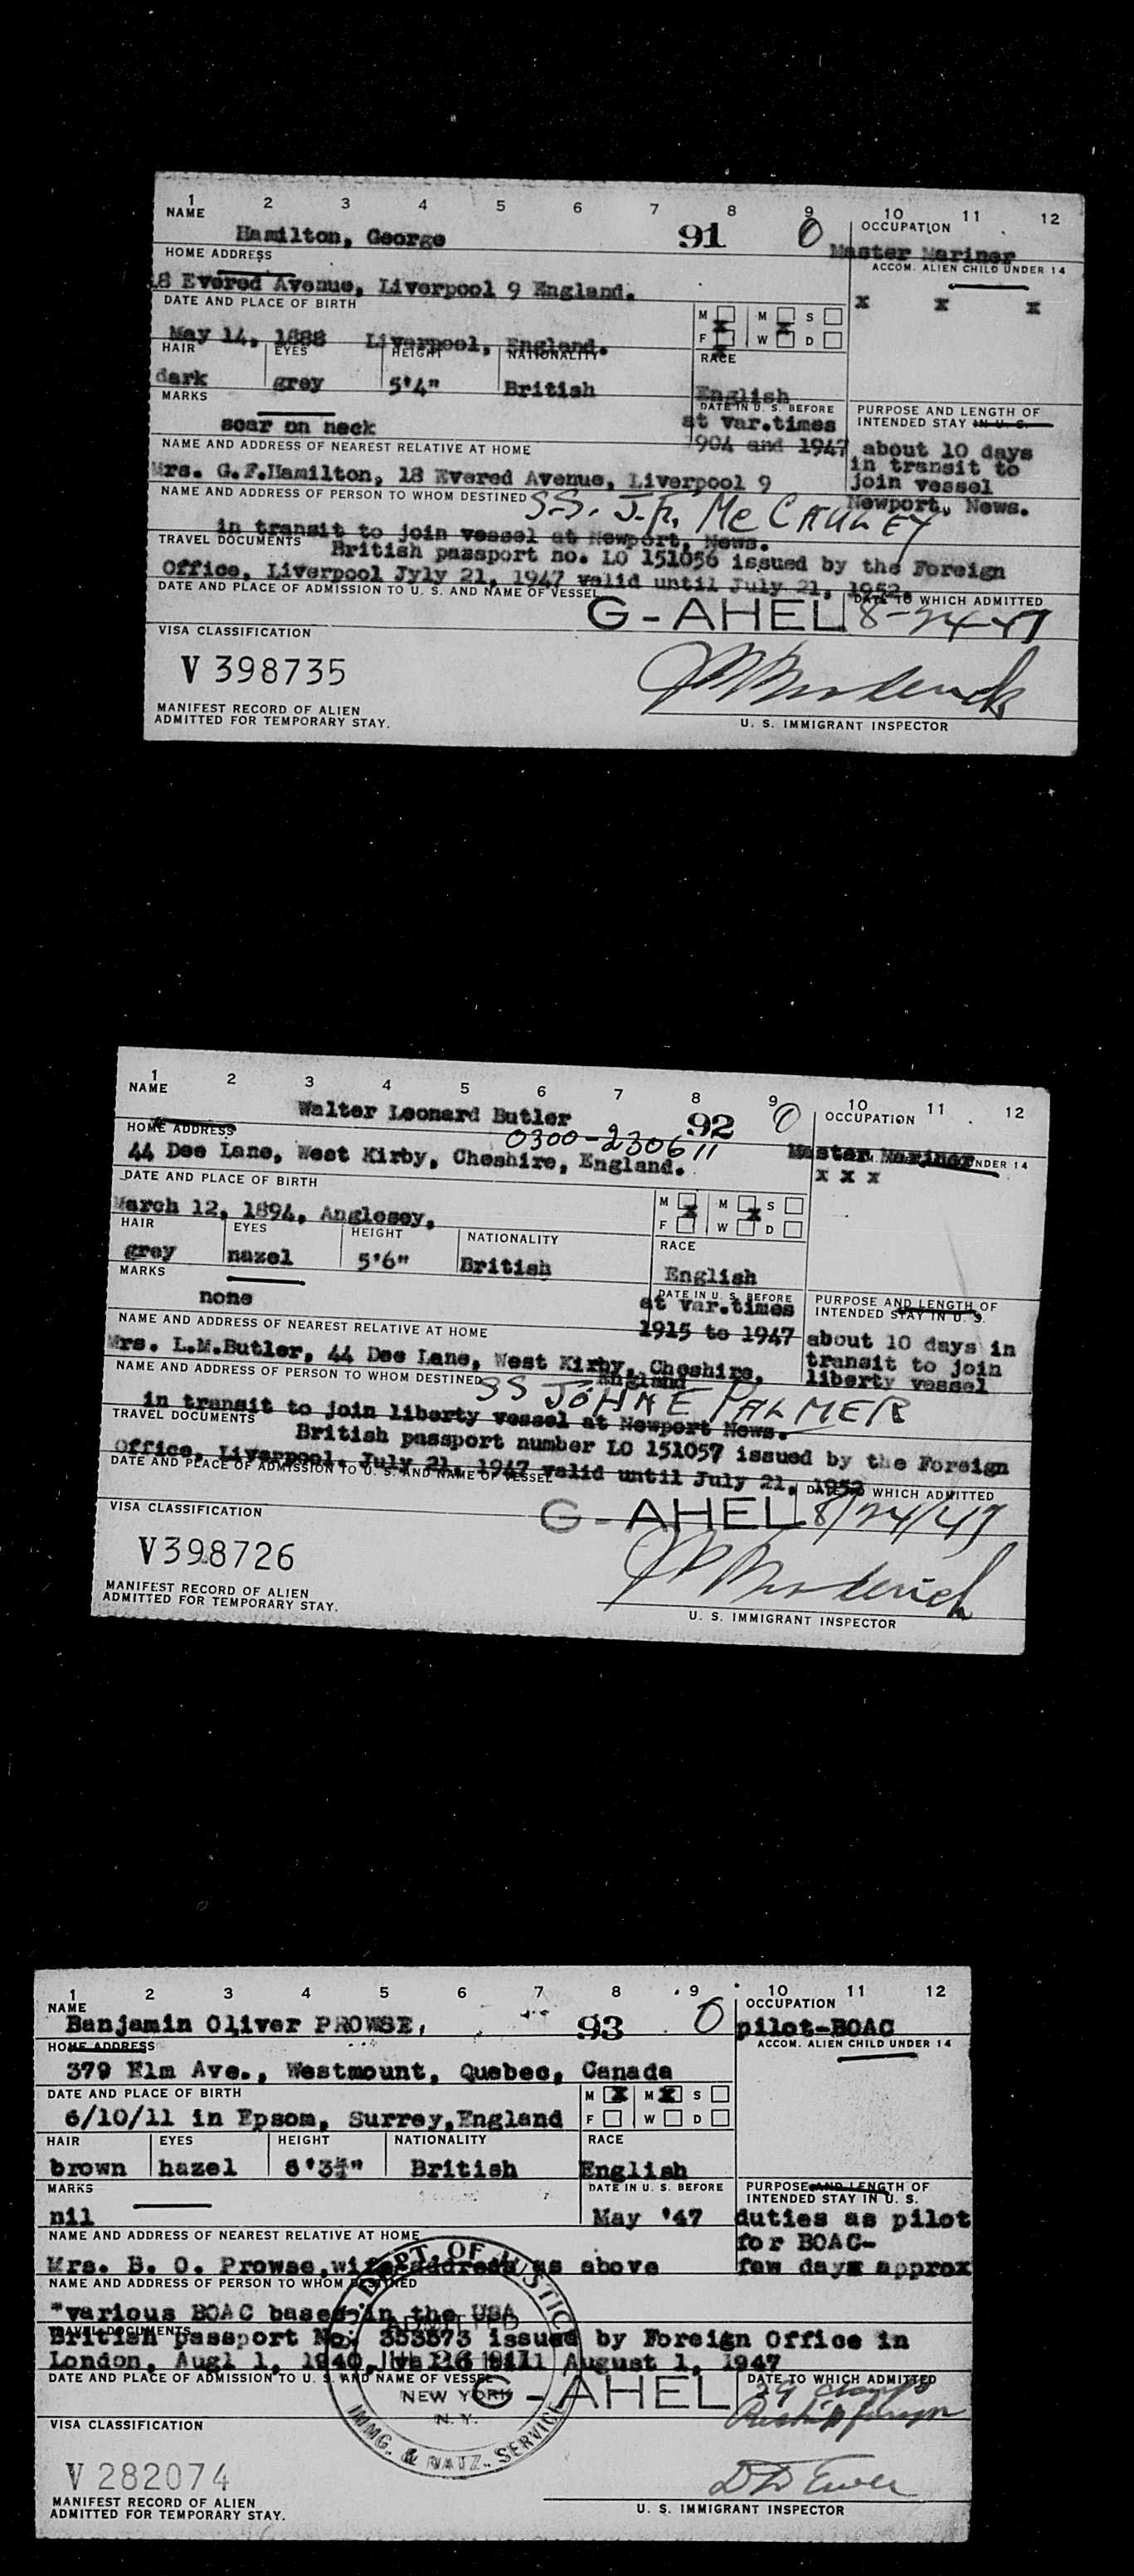 1 2 3 4 5 6 7 8 9 10 11 12
NAME
Hamilton, George 91 0
OCCUPATION
Master Mariner
HOME ADDRESS
ACCOM. ALIEN CHILD UNDER 14
18 Evered Avenue, Liverpool 9 England.
x x x
DATE AND PLACE OF BIRTH
M M S
F W D
May 14, 1888 Liverpool, England.
HAIR EYES HEIGHT NATIONALITY RACE
dark grey 5'4" British English
MARKS
DATE IN U. S. BEFORE
PURPOSE AND LENGTH OF
INTENDED STAY IN U. S.
scar on neck
at var.times
1904 and 1947
about 10 days
in transit to
join vessel
Newport, News.
NAME AND ADDRESS OF NEAREST RELATIVE AT HOME
Mrs. G.F.Hamilton, 18 Evered Avenue, Liverpool 9
NAME AND ADDRESS OF PERSON TO WHOM DESTINED
S.S. J.F. McCAULEY
in transit to join vessel at Newport, News.
TRAVEL DOCUMENTS
British passport no. LO 151056 issued by the Foreign
Office, Liverpool Jyly 21, 1947 valid until July 21, 1952.
DATE AND PLACE OF ADMISSION TO U. S. AND NAME OF VESSEL
DATE TO WHICH ADMITTED
G-AHEL 8-24-47
VISA CLASSIFICATION
V 398735
MANIFEST RECORD OF ALIEN
ADMITTED FOR TEMPORARY STAY.
U. S. IMMIGRANT INSPECTOR
1 2 3 4 5 6 7 8 9 10 11 12
NAME
Walter Leonard Butler 92 0
OCCUPATION
Master Mariner
HOME ADDRESS
0300-230611
UNDER 14
44 Dee Lane, West Kirby, Cheshire, England.
x x x
DATE AND PLACE OF BIRTH
M M S
F W D
March 12, 1894, Anglesey,
HAIR EYES HEIGHT NATIONALITY RACE
grey hazel 5'6" British English
MARKS
DATE IN U. S. BEFORE
PURPOSE AND LENGTH OF
INTENDED STAY IN U. S.
none
at var.times
1915 to 1947
about 10 days in
transit to join
liberty vessel
NAME AND ADDRESS OF NEAREST RELATIVE AT HOME
Mrs. L.M.Butler, 44 Dee Lane, West Kirby, Cheshire,
England
NAME AND ADDRESS OF PERSON TO WHOM DESTINED
SS JOHN E PALMER
in transit to join liberty vessel at Newport News.
TRAVEL DOCUMENTS
British passport number LO 151057 issued by the Foreign
Office, Liverpool. July 21, 1947 valid until July 21, 1952
DATE AND PLACE OF ADMISSION TO U. S. AND NAME OF VESSEL
DATE TO WHICH ADMITTED
G-AHEL 8/24/47
VISA CLASSIFICATION
V398726
MANIFEST RECORD OF ALIEN
ADMITTED FOR TEMPORARY STAY.
U. S. IMMIGRANT INSPECTOR
1 2 3 4 5 6 7 8 9 10 11 12
NAME
Banjamin Oliver PROWSE, 93 0
OCCUPATION
pilot-BOAC
HOME ADDRESS
ACCOM. ALIEN CHILD UNDER 14
379 Elm Ave., Westmount, Quebec, Canada
DATE AND PLACE OF BIRTH
M M S
F W D
6/10/11 in Epsom, Surrey,England
HAIR EYES HEIGHT NATIONALITY RACE
brown hazel British English
MARKS
DATE IN U. S. BEFORE
PURPOSE AND LENGTH OF
INTENDED STAY IN U. S.
nil
May '47
duties as pilot
for BOAC-
few days approx
NAME AND ADDRESS OF NEAREST RELATIVE AT HOME
Mrs. B. O. Prowse,wife-address as above
NAME AND ADDRESS OF PERSON TO WHOM DESTINED
"various BOAC bases in the USA
TRAVEL DOCUMENTS
British passport No: 353573 issued by Foreign Office in
London, Augl 1, 1940, valid till August 1, 1947
DATE AND PLACE OF ADMISSION TO U. S. AND NAME OF VESSEL
DATE TO WHICH ADMITTED
DEPT OF JUSTICE
ADMITTED
NEW YORK
N. Y.
IMMG. & NATZ. SERVICE
G-AHEL
29 days
VISA CLASSIFICATION
V 282074
MANIFEST RECORD OF ALIEN
ADMITTED FOR TEMPORARY STAY.
U. S. IMMIGRANT INSPECTOR